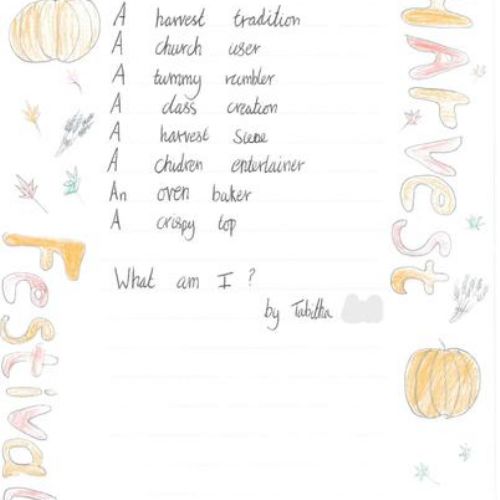 A harvest tradition
A church user
A tummy rumbler
A class creation
A harvest
A children entertainer
An oven baker
A crispy top
What am I ?
by Tabitha
HArvest
Festival